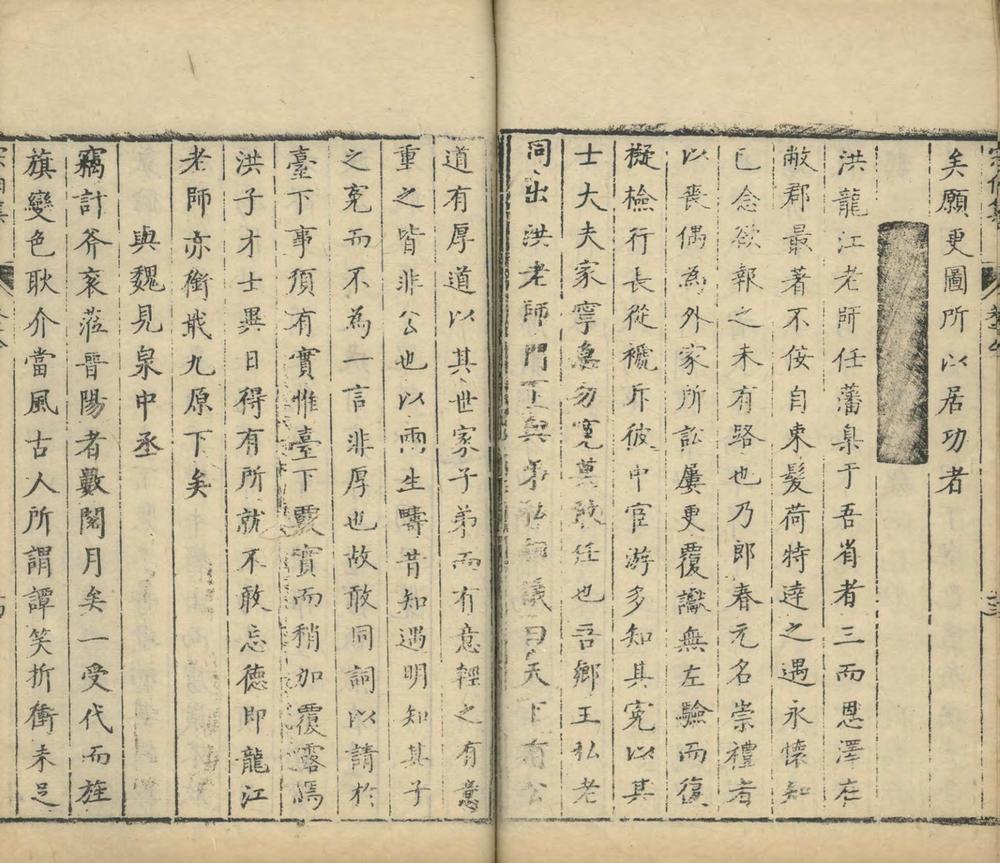 矣願更圖所以居功者
洪龍江老師任藩臬于吾省者三而恩澤在
敝郡最著不佞自束髮荷特達之遇永懷知
已念欲報之未有路也乃郎春元名崇禮者
以喪偶為外家所訟屢更覆讞無左驗而復
擬檢行長從褫斥彼中宦游多知其冤以其
士大夫家寧急勿寬莫敢任也吾鄉王弘老
同出洪老師門下與弟私議曰天下有公
道有厚道以其世家子弟而有意輕之有意
重之皆非公也以兩生疇昔知遇明知其子
之冤而不為一言非厚也故敢同詞以請於
臺下事須有實惟臺下覈實而稍加覆露焉
洪子才士異日得有所就不敢忘德即龍江
老師亦銜戢九原下矣
與魏見泉中丞
竊計斧衮蒞晉陽者數閱月矣一受代而旌
旗變色耿介當風古人所謂譚笑折衝未足